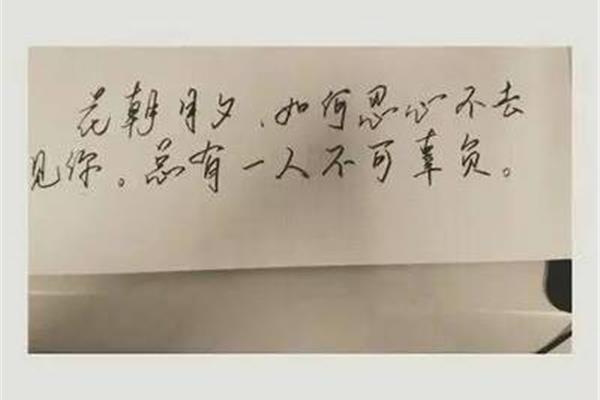 花朝月夕、如何忍心不去
见你。总有一人不可辜负。